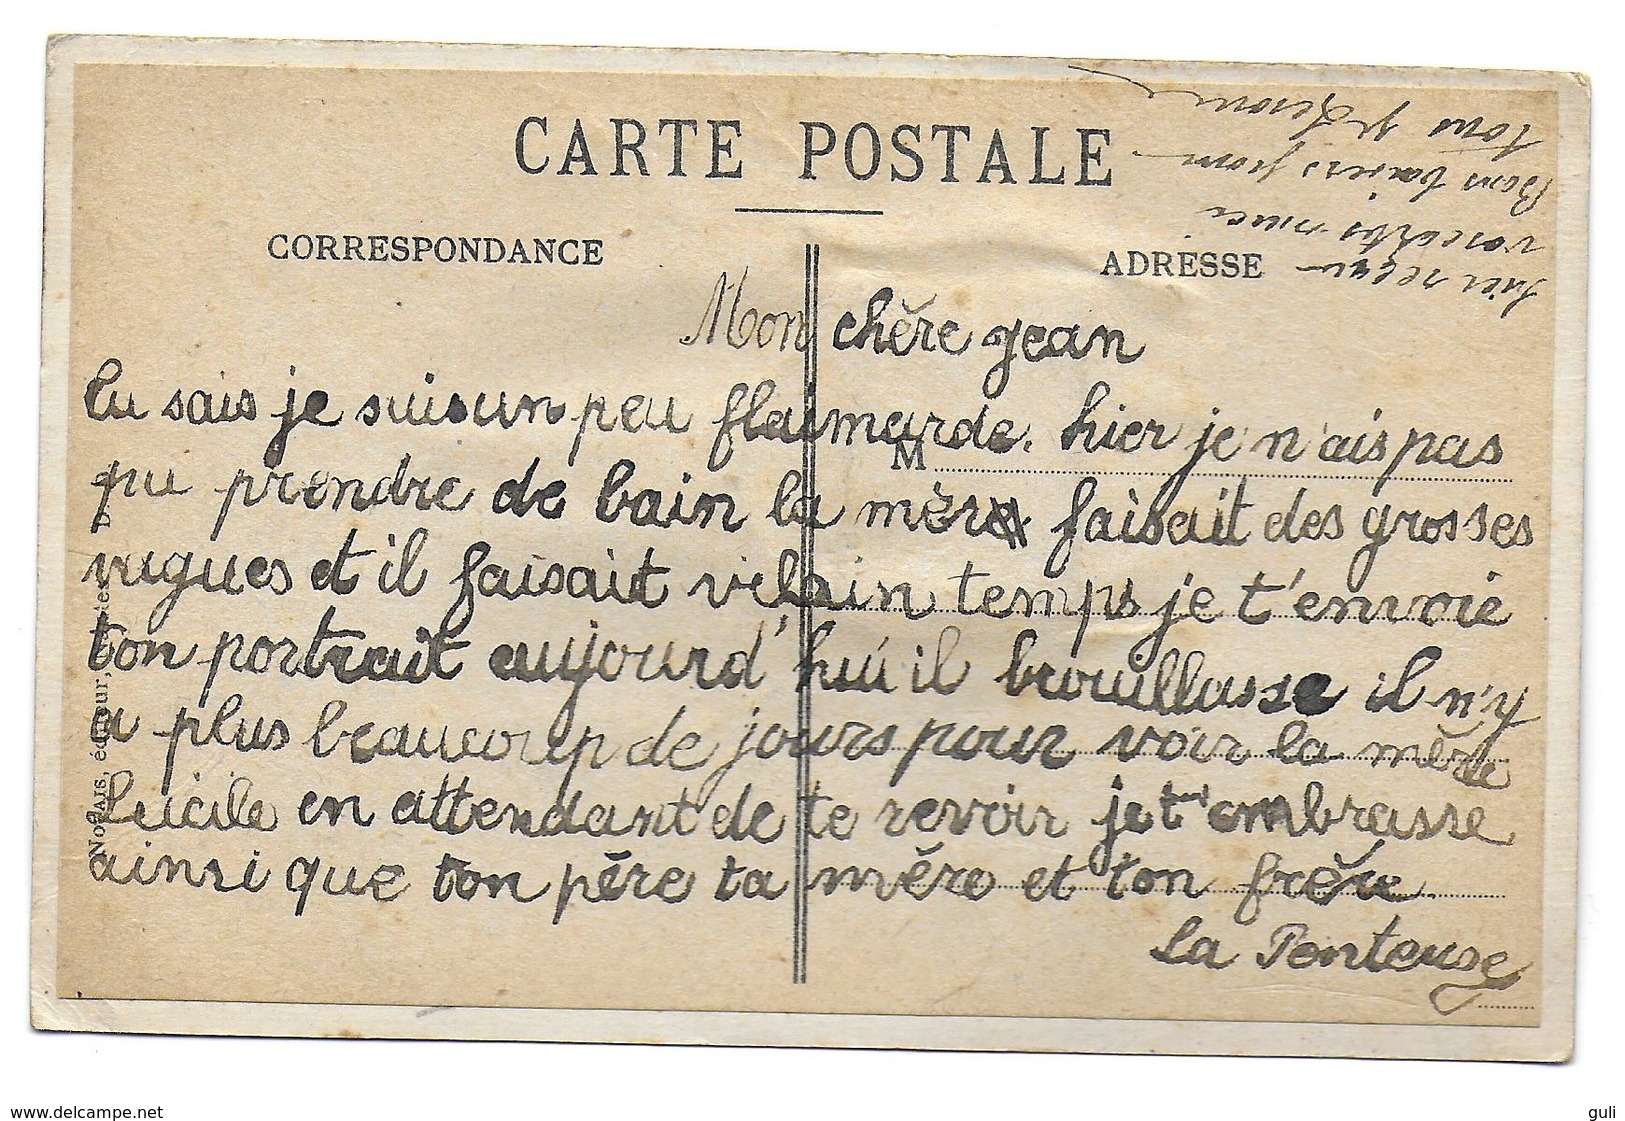 CARTE POSTALE
CORRESPONDANCE
ADRESSE
hier reçu
vos cartes merci
Bons baisers pour
tous
Mon chère jean
tu sais je suis un peu flaimarde. hier je n'ais pas
M
pu prendre de bain la mèr faisait des grosses
vugues et il faisait vilain temps je t'envoie
ton portrait aujourd'hui il brouillasse il n'y
a plus beaucoup de jours pour voir la mère
Lucile en attendant de te revoir je t'embrasse
ainsi que ton père ta mère et ton frère.
la Ponteuse
Nogais, éditeur,
www.delcampe.net
guli